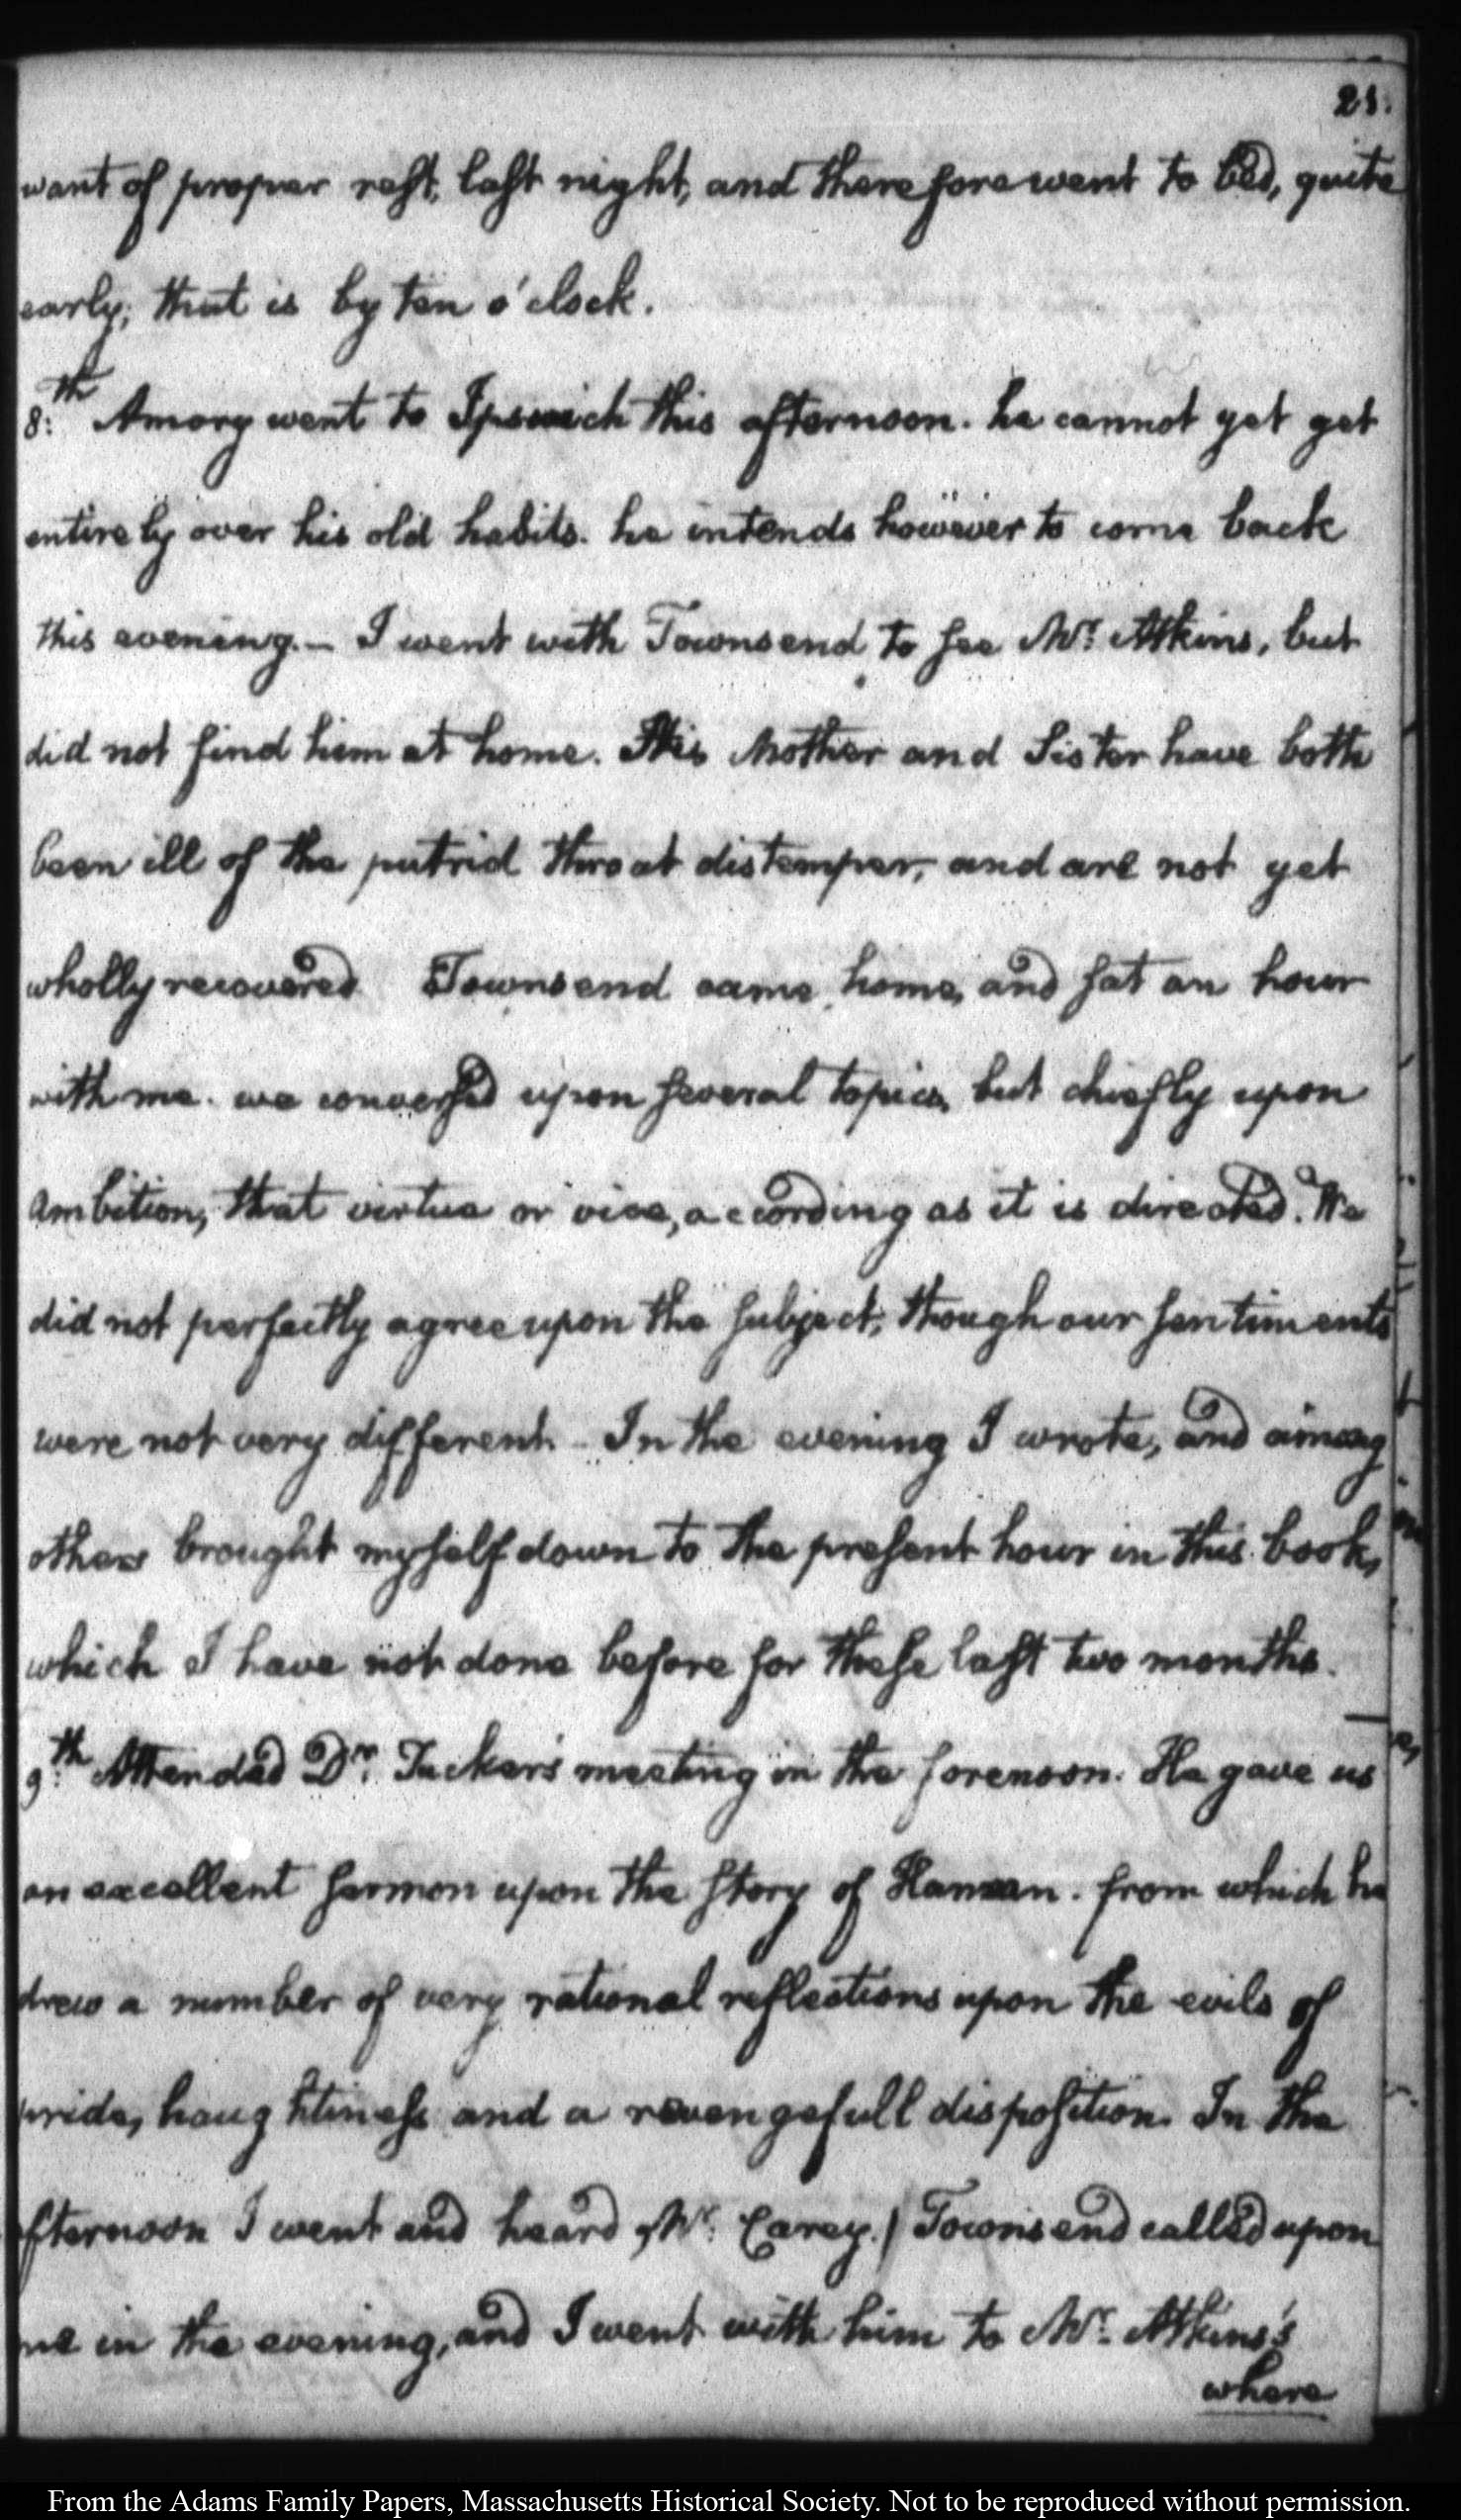 21.
want of proper rest, last night, and therefore went to bed, quite
early; that is by ten o'clock.
8:th Amory went to Ipswich this afternoon. he cannot yet get
entirely over his old habits. he intends however to come back
this evening.— I went with Townsend, to see Mr. Atkins, but
did not find him at home. His Mother and Sister have both
been ill of the putrid throat distemper, and are not yet
wholly recovered Townsend came home, and sat an hour
with me. we conversed upon several topics, but chiefly upon
Ambition, that virtue or vice, according as it is directed. We
did not perfectly agree upon the subject, though our sentiments
were not very different. In the evening I wrote, and among
others brought myself down to the present hour in this book,
which I have not done before for these last two months.
9:th Attended Dr. Tucker's meeting in the forenoon. He gave us
an excellent sermon upon the story of Haman. from which he
drew a number of very rational reflections upon the evils of
pride, haughtiness and a revengefull disposition. In the
afternoon I went and heard Mr. Carey. Townsend called upon
me in the evening, and I went with him to Mr. Atkins's
where
From the Adams Family Papers, Massachusetts Historical Society. Not to be reproduced without permission.